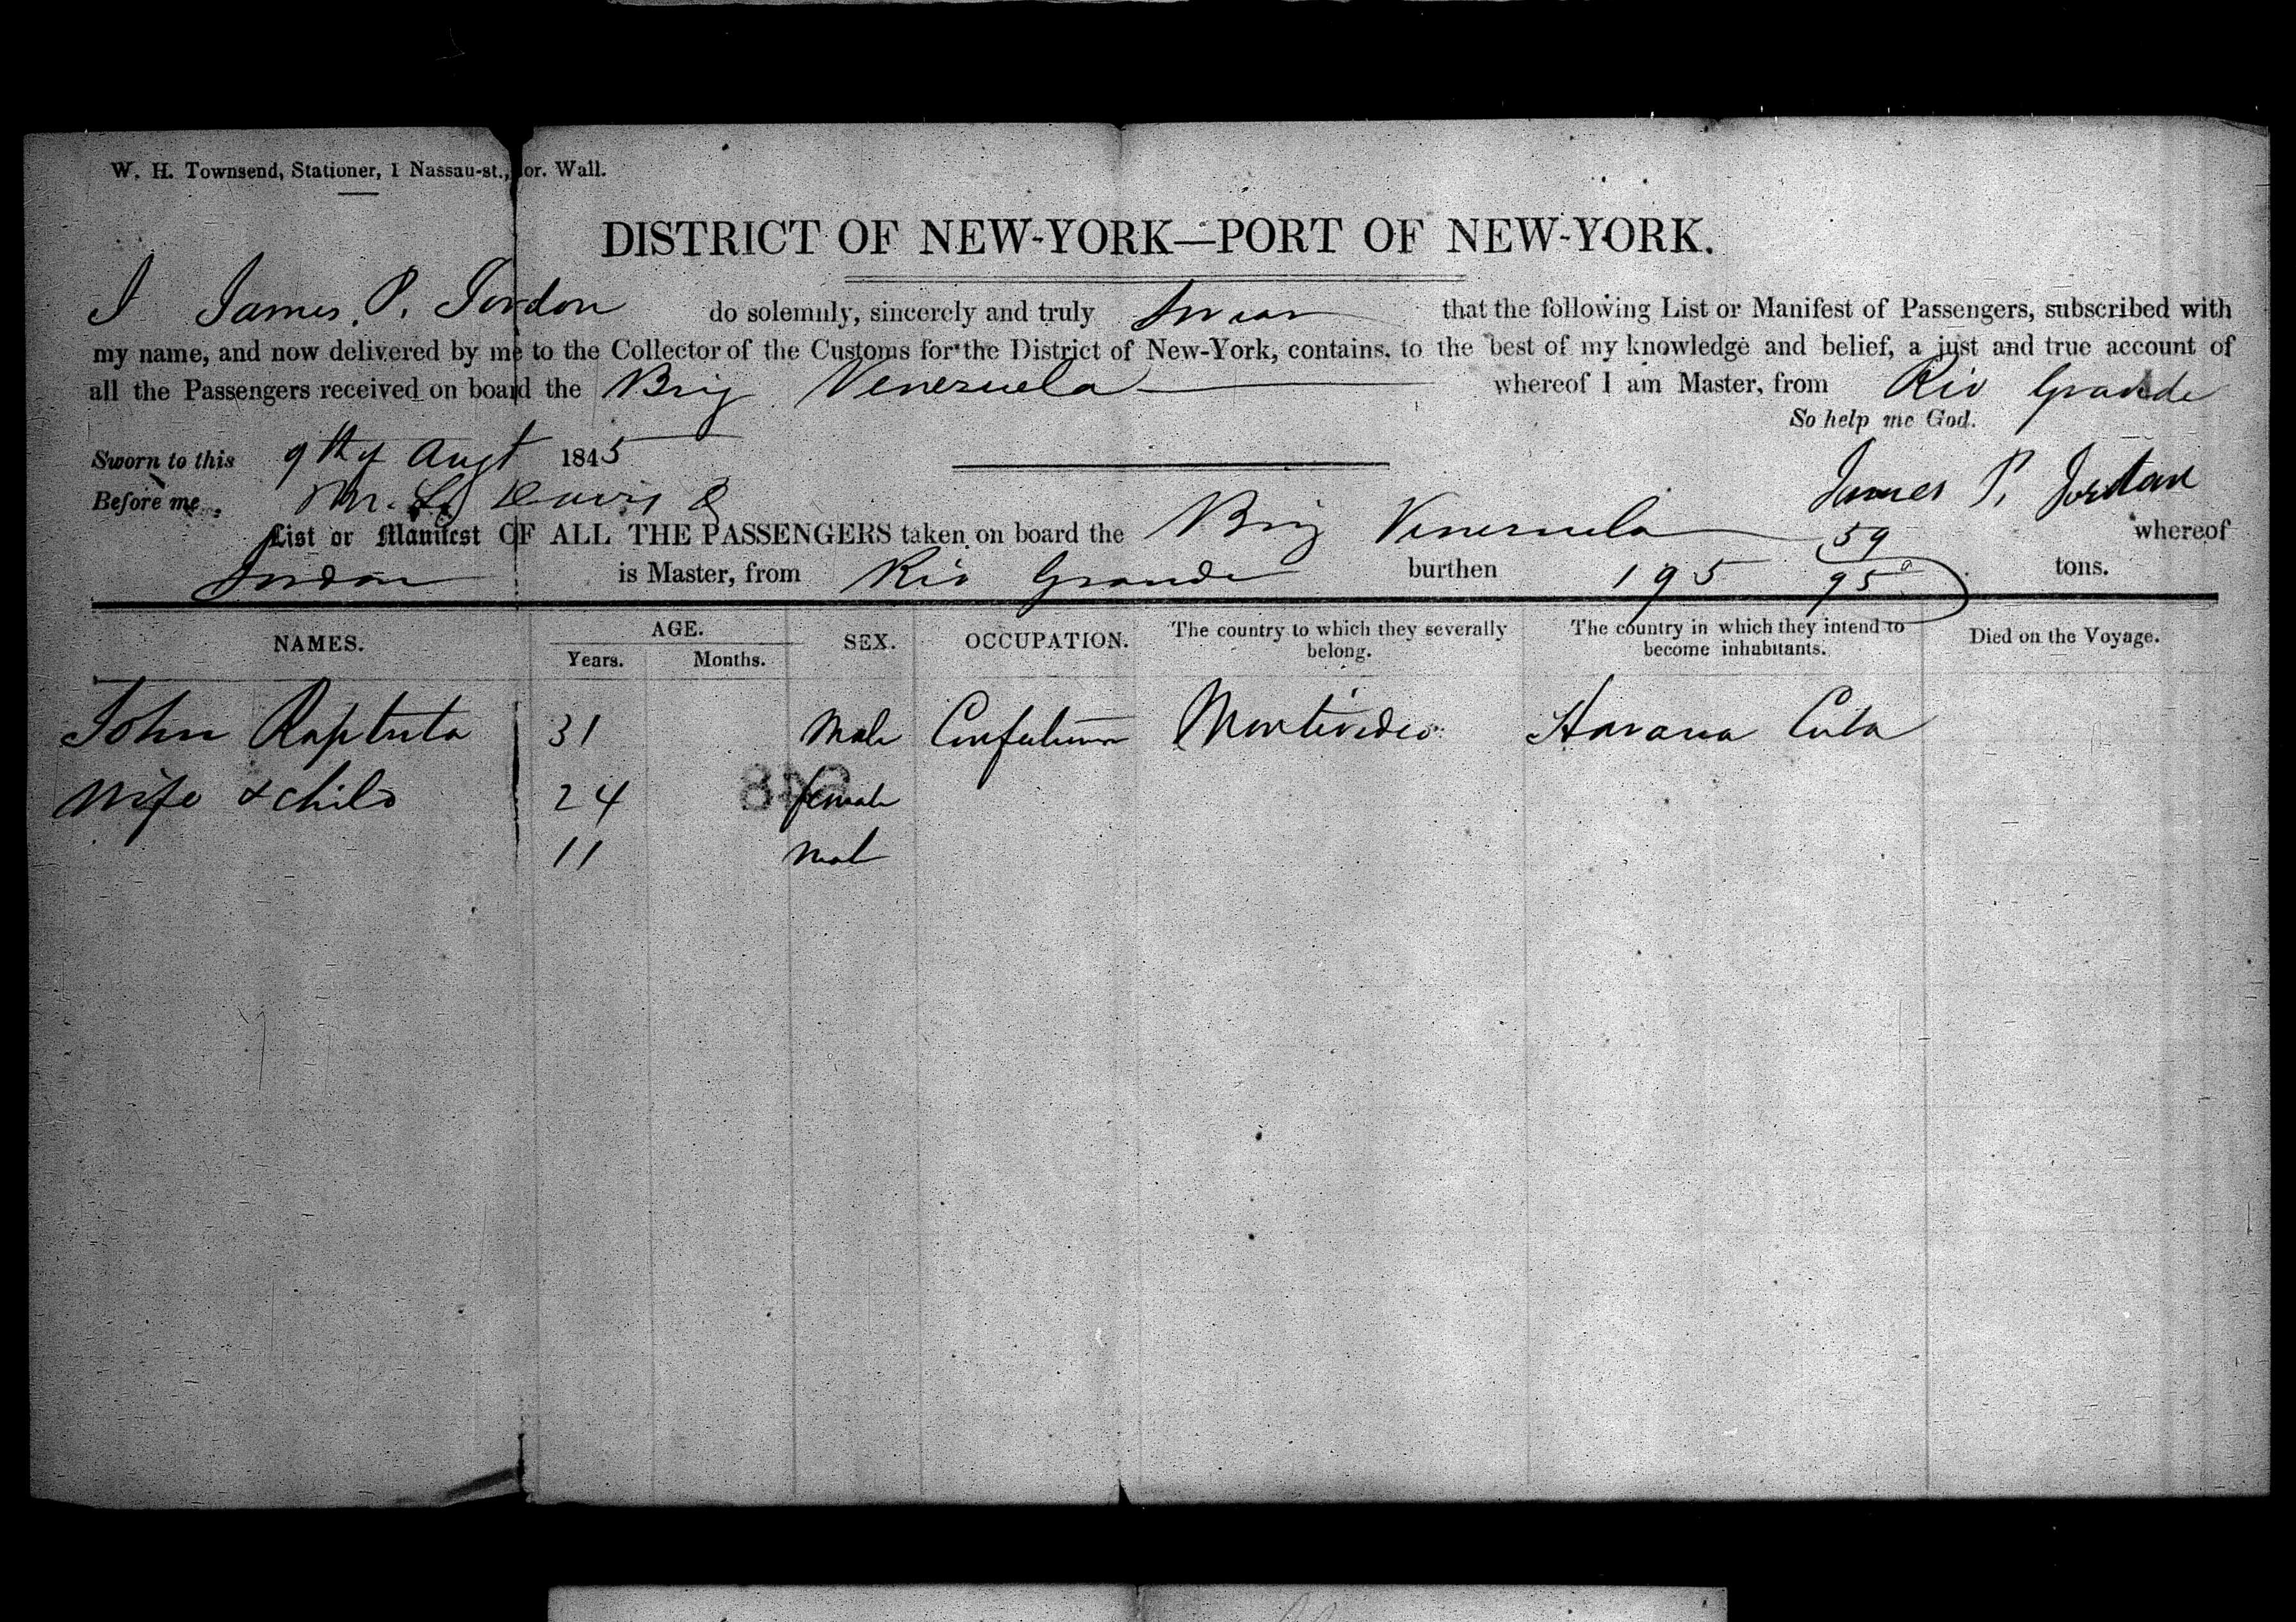 W. H. Townsend, Stationer, 1 Nassau-st., cor. Wall.
DISTRICT OF NEW-YORK—PORT OF NEW-YORK.
I James P. Jordon do solemnly, sincerely and truly Swear that the following List or Manifest of Passengers, subscribed with
my name, and now delivered by me to the Collector of the Customs for the District of New-York, contains, to the best of my knowledge and belief, a just and true account of
all the Passengers received on board the Brig Venezuela whereof I am Master, from Rio Grande
So help me God.
Sworn to this 9th of Augt 1845
James P. Jordan
Before me, Davis
List or Manifest OF ALL THE PASSENGERS taken on board the Brig Venezuela whereof
Jordon is Master, from Rio Grande burthen 195 59/95 tons.
NAMES. AGE. SEX. OCCUPATION. The country to which they severally belong. The country in which they intend to become inhabitants. Died on the Voyage.
Years. Months.
John 31 Male Montevideo Havana Cuba
Wife & child 24 female
11 mal